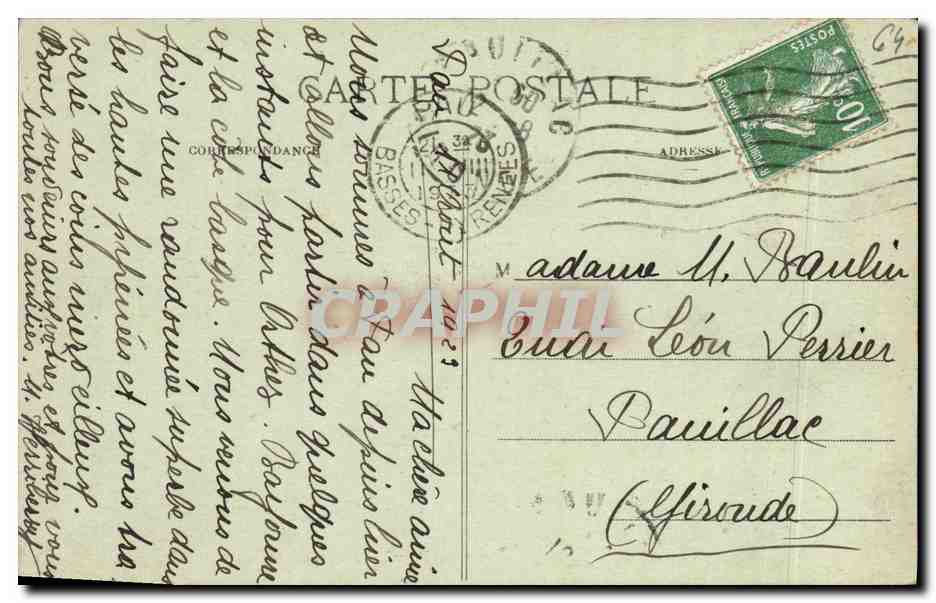 CARTE POSTALE
CORRESPONDANCE
ADRESSE
64
POSTES
10c
BASSES PYRENEES
Pau Août 1923
Ma chère amie
Nous sommes à Pau depuis hier
et allons partir dans quelques
instants pour Orthez. Bayonne
et la côte basque. Nous venons de
faire une randonnée superbe dans
les hautes pyrénées et avons tra
versé des coins merveilleux.
Bons souvenirs aux vôtres et pour vous
toutes nos amitiés. M.
Madame M. Baulin
Quai Léon Perrier
Pauillac
(Gironde)
CRAPHIL